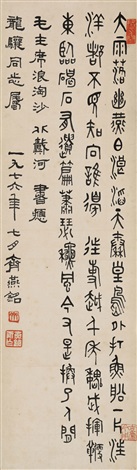 大雨落幽燕白浪滔天秦皇島外打魚船一片汪
洋都不見知向誰邊往事越千年魏武揮鞭
東臨碣石有遺篇蕭瑟秋風今又是換了人間
毛主席浪淘沙北戴河 書應
龍驤同志屬
一九七六年七月齊燕銘